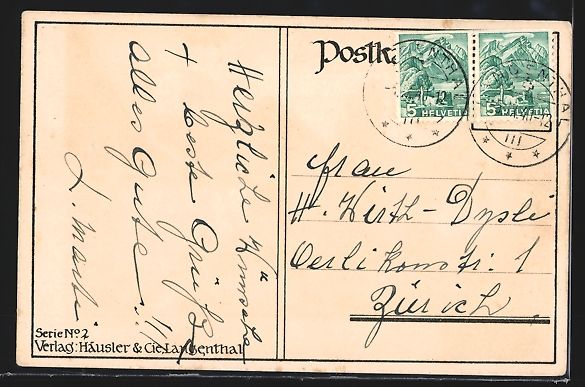 Postka
5 HELVETIA 5 HELVETIA
Herzliche Wünsche
+ beste Grüße
alles Gute!!
Frau
H. Wirth-Dysli
Oerlikonstr. 1
Zürich.
Serie No. 2
Verlag: Häusler & Cie. Langenthal